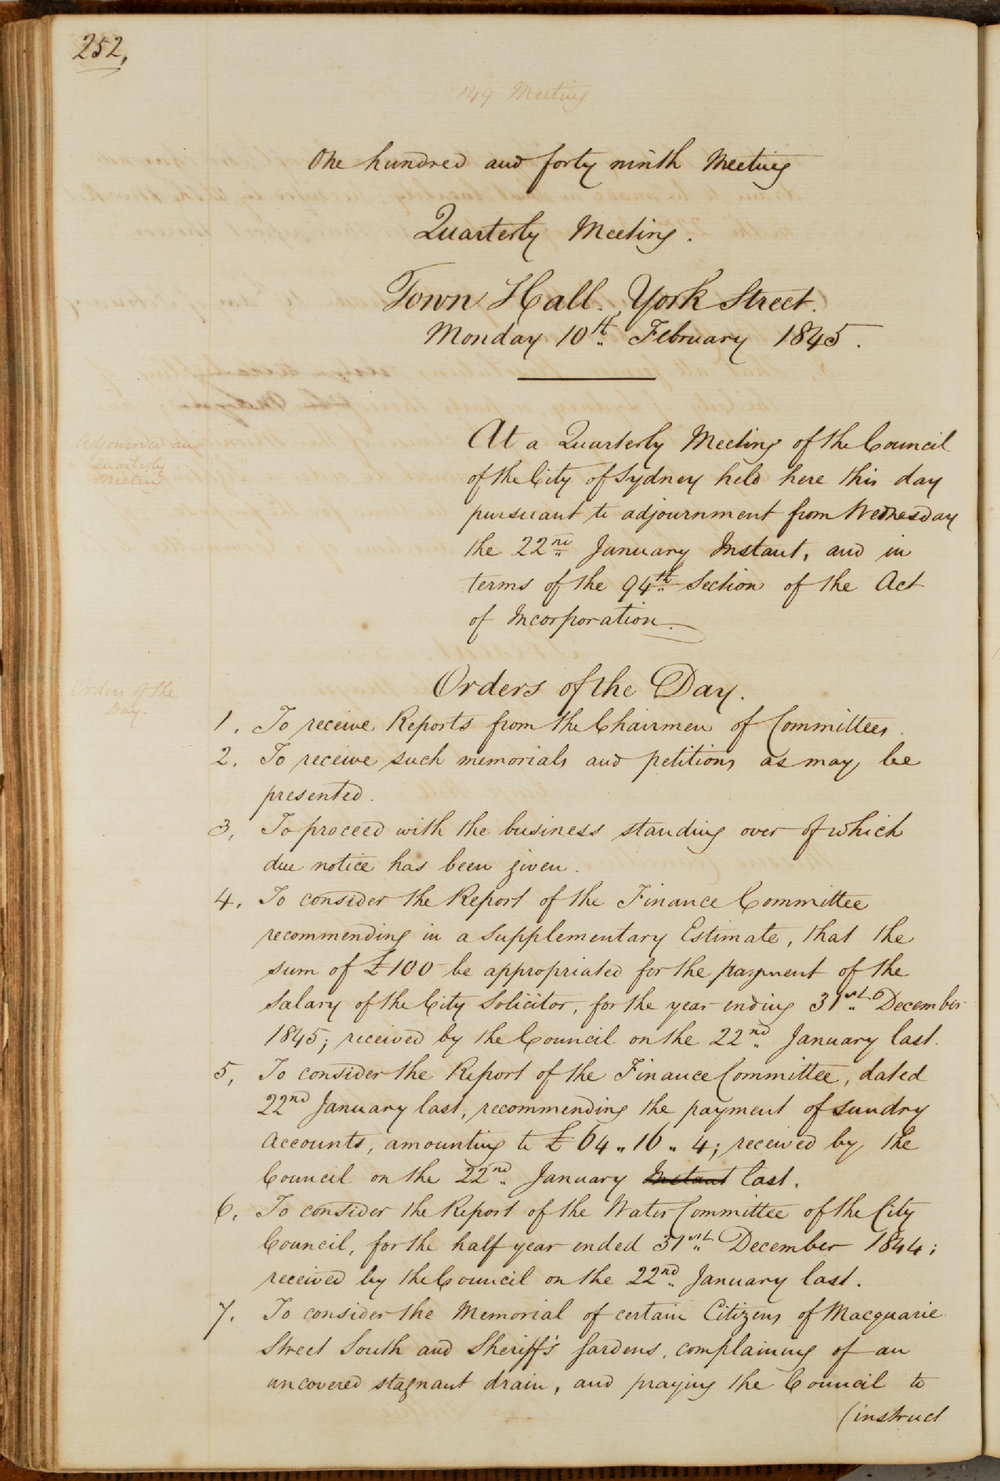 252,
149 Meeting
One hundred and forty ninth Meeting
Quarterly Meeting.
Town Hall. York Street.
Monday 10th February 1845.
Adjourned and
Quarterly
Meeting
At a Quarterly Meeting of the Council
of the City of Sydney held here this day
pursuant to adjournment from Wednesday
the 22nd January Instant, and in
terms of the 94th Section of the Act
of Incorporation.
Orders of the
Day.
Orders of the Day.
1. To receive Reports from the Chairmen of Committees.
2. To receive such memorials and petitions as may be
presented.
3. To proceed with the business standing over of which
due notice has been given.
4. To consider the Report of the Finance Committee
recommending in a Supplementary Estimate, that the
sum of £100 be appropriated for the payment of the
Salary of the City Solicitor, for the year ending 31st December
1845; received by the Council on the 22nd January last.
5. To consider the Report of the Finance Committee, dated
22nd January last, recommending the payment of sundry
Accounts, amounting to £64.. 16.. 4; received by the
Council on the 22nd January Instant last.
6. To consider the Report of the Water Committee of the City
Council, for the half year ended 31st December 1844;
received by the Council on the 22nd January last.
7. To consider the Memorial of certain Citizens of Macquarie
Street South and Sheriff's Gardens, complaining of an
uncovered stagnant drain, and praying the Council to
(instruct